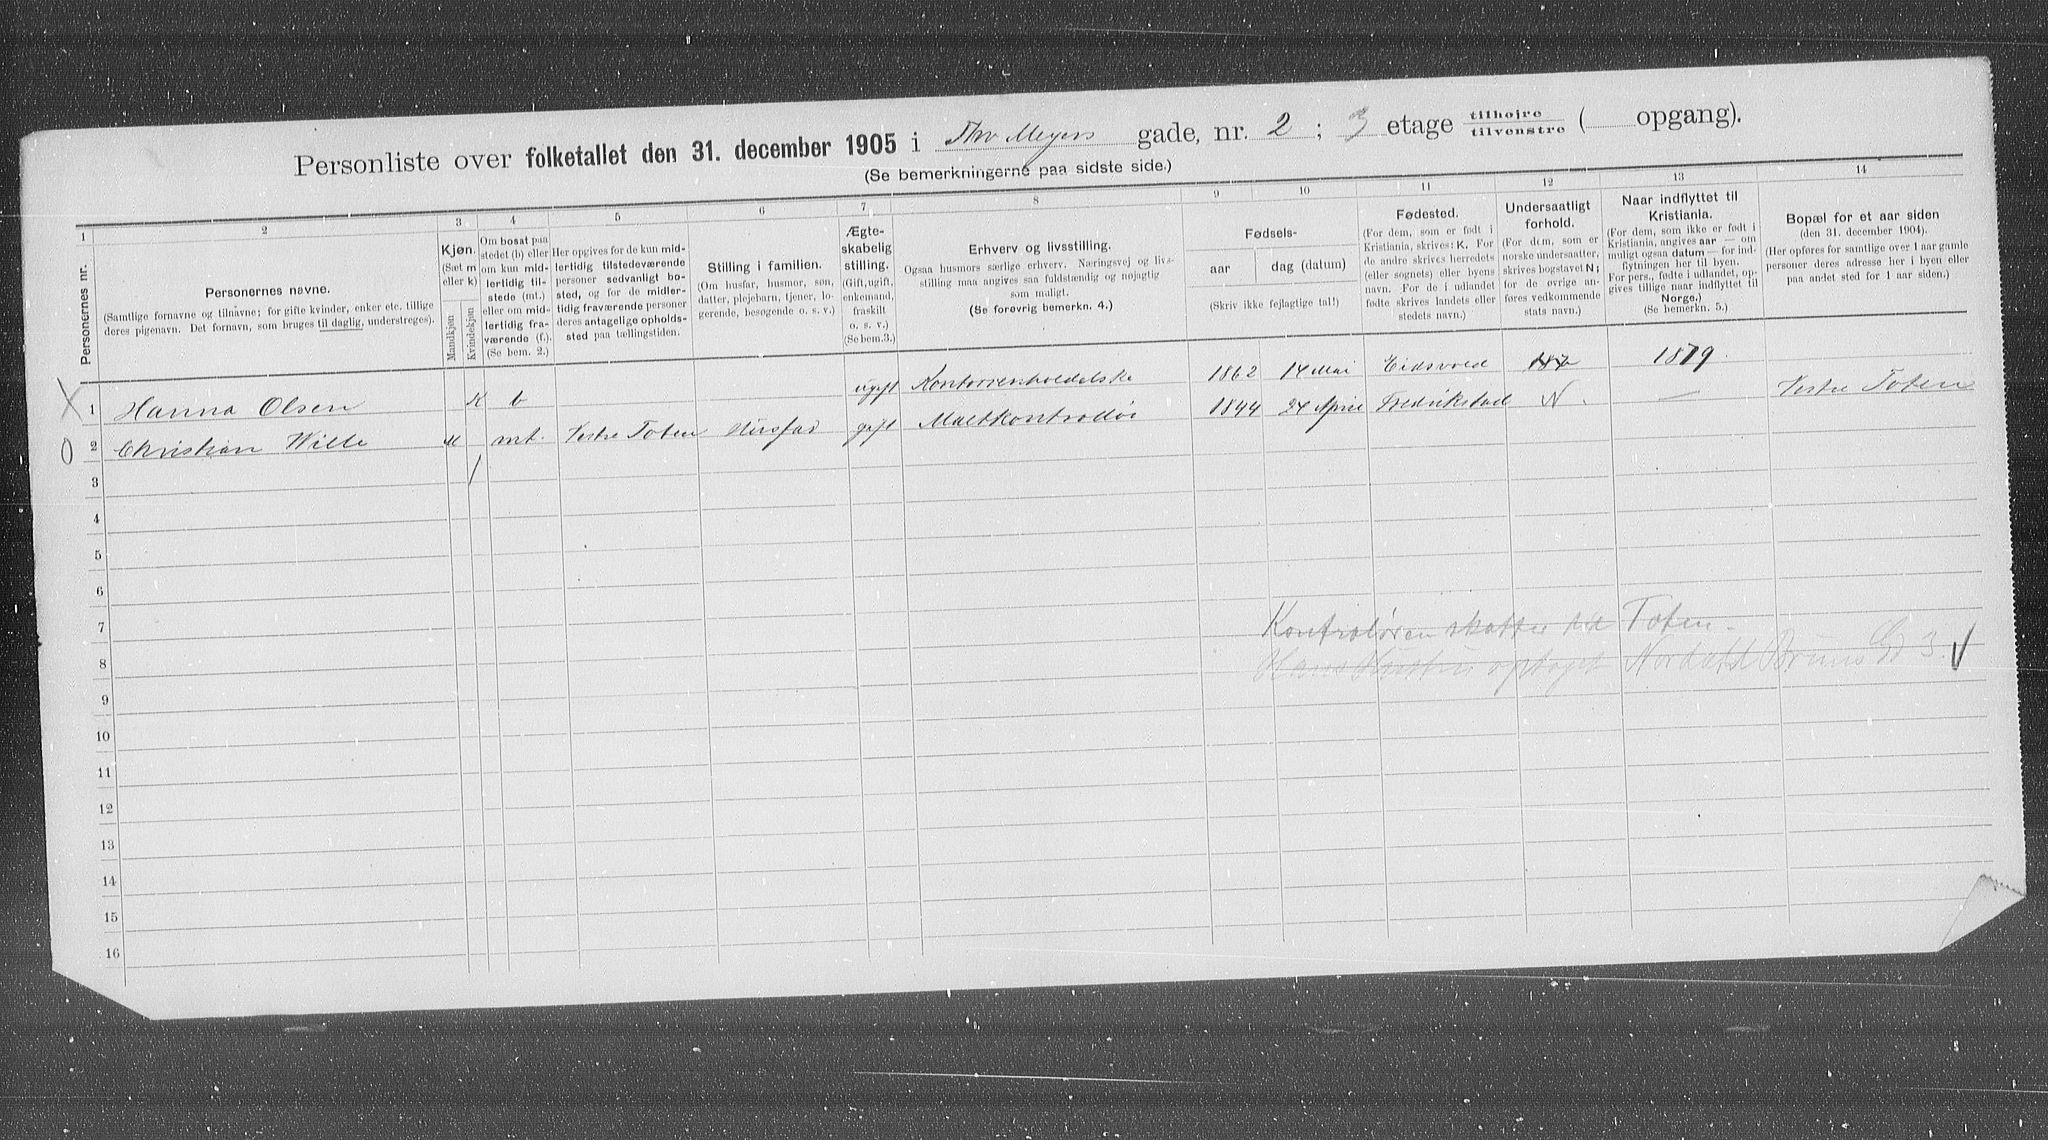 Personliste over folketallet den 31. december 1905 i Thv Meyers gade, nr. 2 ; 3 etage tilhøire/tilvenstre ( opgang).
(Se bemerkningerne paa sidste side.)
1 2 3 4 5 6 7 8 9 10 11 12 13 14
Personernes nr.
Personernes navne.
(Samtlige fornavne og tilnavne; for gifte kvinder, enker etc. tillige
deres pigenavn. Det fornavn, som bruges til daglig, understreges).
Kjøn.
(Sæt m
eller k)
Mandkjøn
Kvindekjøn
Om bosat paa
stedet (b) eller
om kun mid-
lertidig til-
stede (mt.)
eller om mid-
lertidig fra-
værende (f.).
(Se bem. 2.)
Her opgives for de kun mid-
lertidig tilstedeværende
personer sedvanligt bo-
sted, og for de midler-
tidig fraværende personer
deres antagelige opholds-
sted paa tællingstiden.
Stilling i familien.
(Om husfar, husmor, søn,
datter, plejebarn, tjener, lo-
gerende, besøgende o. s. v.)
Ægte-
skabelig
stilling.
(Gift, ugift,
enkemand,
fraskilt
o. s. v.)
(Se bem.3.)
Erhverv og livsstilling.
Ogsaa husmors særlige erhverv. Næringsvej og livs-
stilling maa angives saa fuldstændig og nøjagtig
som muligt.
(Se forøvrig bemerkn. 4.)
Fødsels-
aar dag (datum)
(Skriv ikke fejlagtige tal!)
Fødested.
(For dem, som er født i
Kristiania, skrives: K. For
de andre skrives herredets
(eller sognets) eller byens
navn. For de i udlandet
fødte skrives landets eller
stedets navn.)
Undersaatligt
forhold.
(For dem, som er
norske undersaatter,
skrives bogstavet N;
for de øvrige an-
føres vedkommende
stats navn.)
Naar indflyttet til
Kristiania.
(For dem, som ikke er født i
Kristiania, angives aar — om
muligt ogsaa datum — for ind-
flytningen her til byen.
For pers., fødte i udlandet, op-
gives tillige naar indflyttet til
Norge.)
(Se bemerkn. 5.)
Bopæl for et aar siden
(den 31. december 1904).
(Her opføres for samtlige over 1 aar gamle
personer deres adresse her i byen eller
paa andet sted for 1 aar siden.)
X 1 Hanna Olsen K b ugift 1862 14 Mai Eidsvold 1879
0 2 Christian Wille M mt. Vestre Toten Husfad gift Maltkontrollør 1844 24 April Fredrikstad N. — Vestre Toten
3
4
5
6
7 Kontroløren skatter til Toten.
8 optaget Nordahl Bruns Gd 3. √
9
10
11
12
13
14
15
16